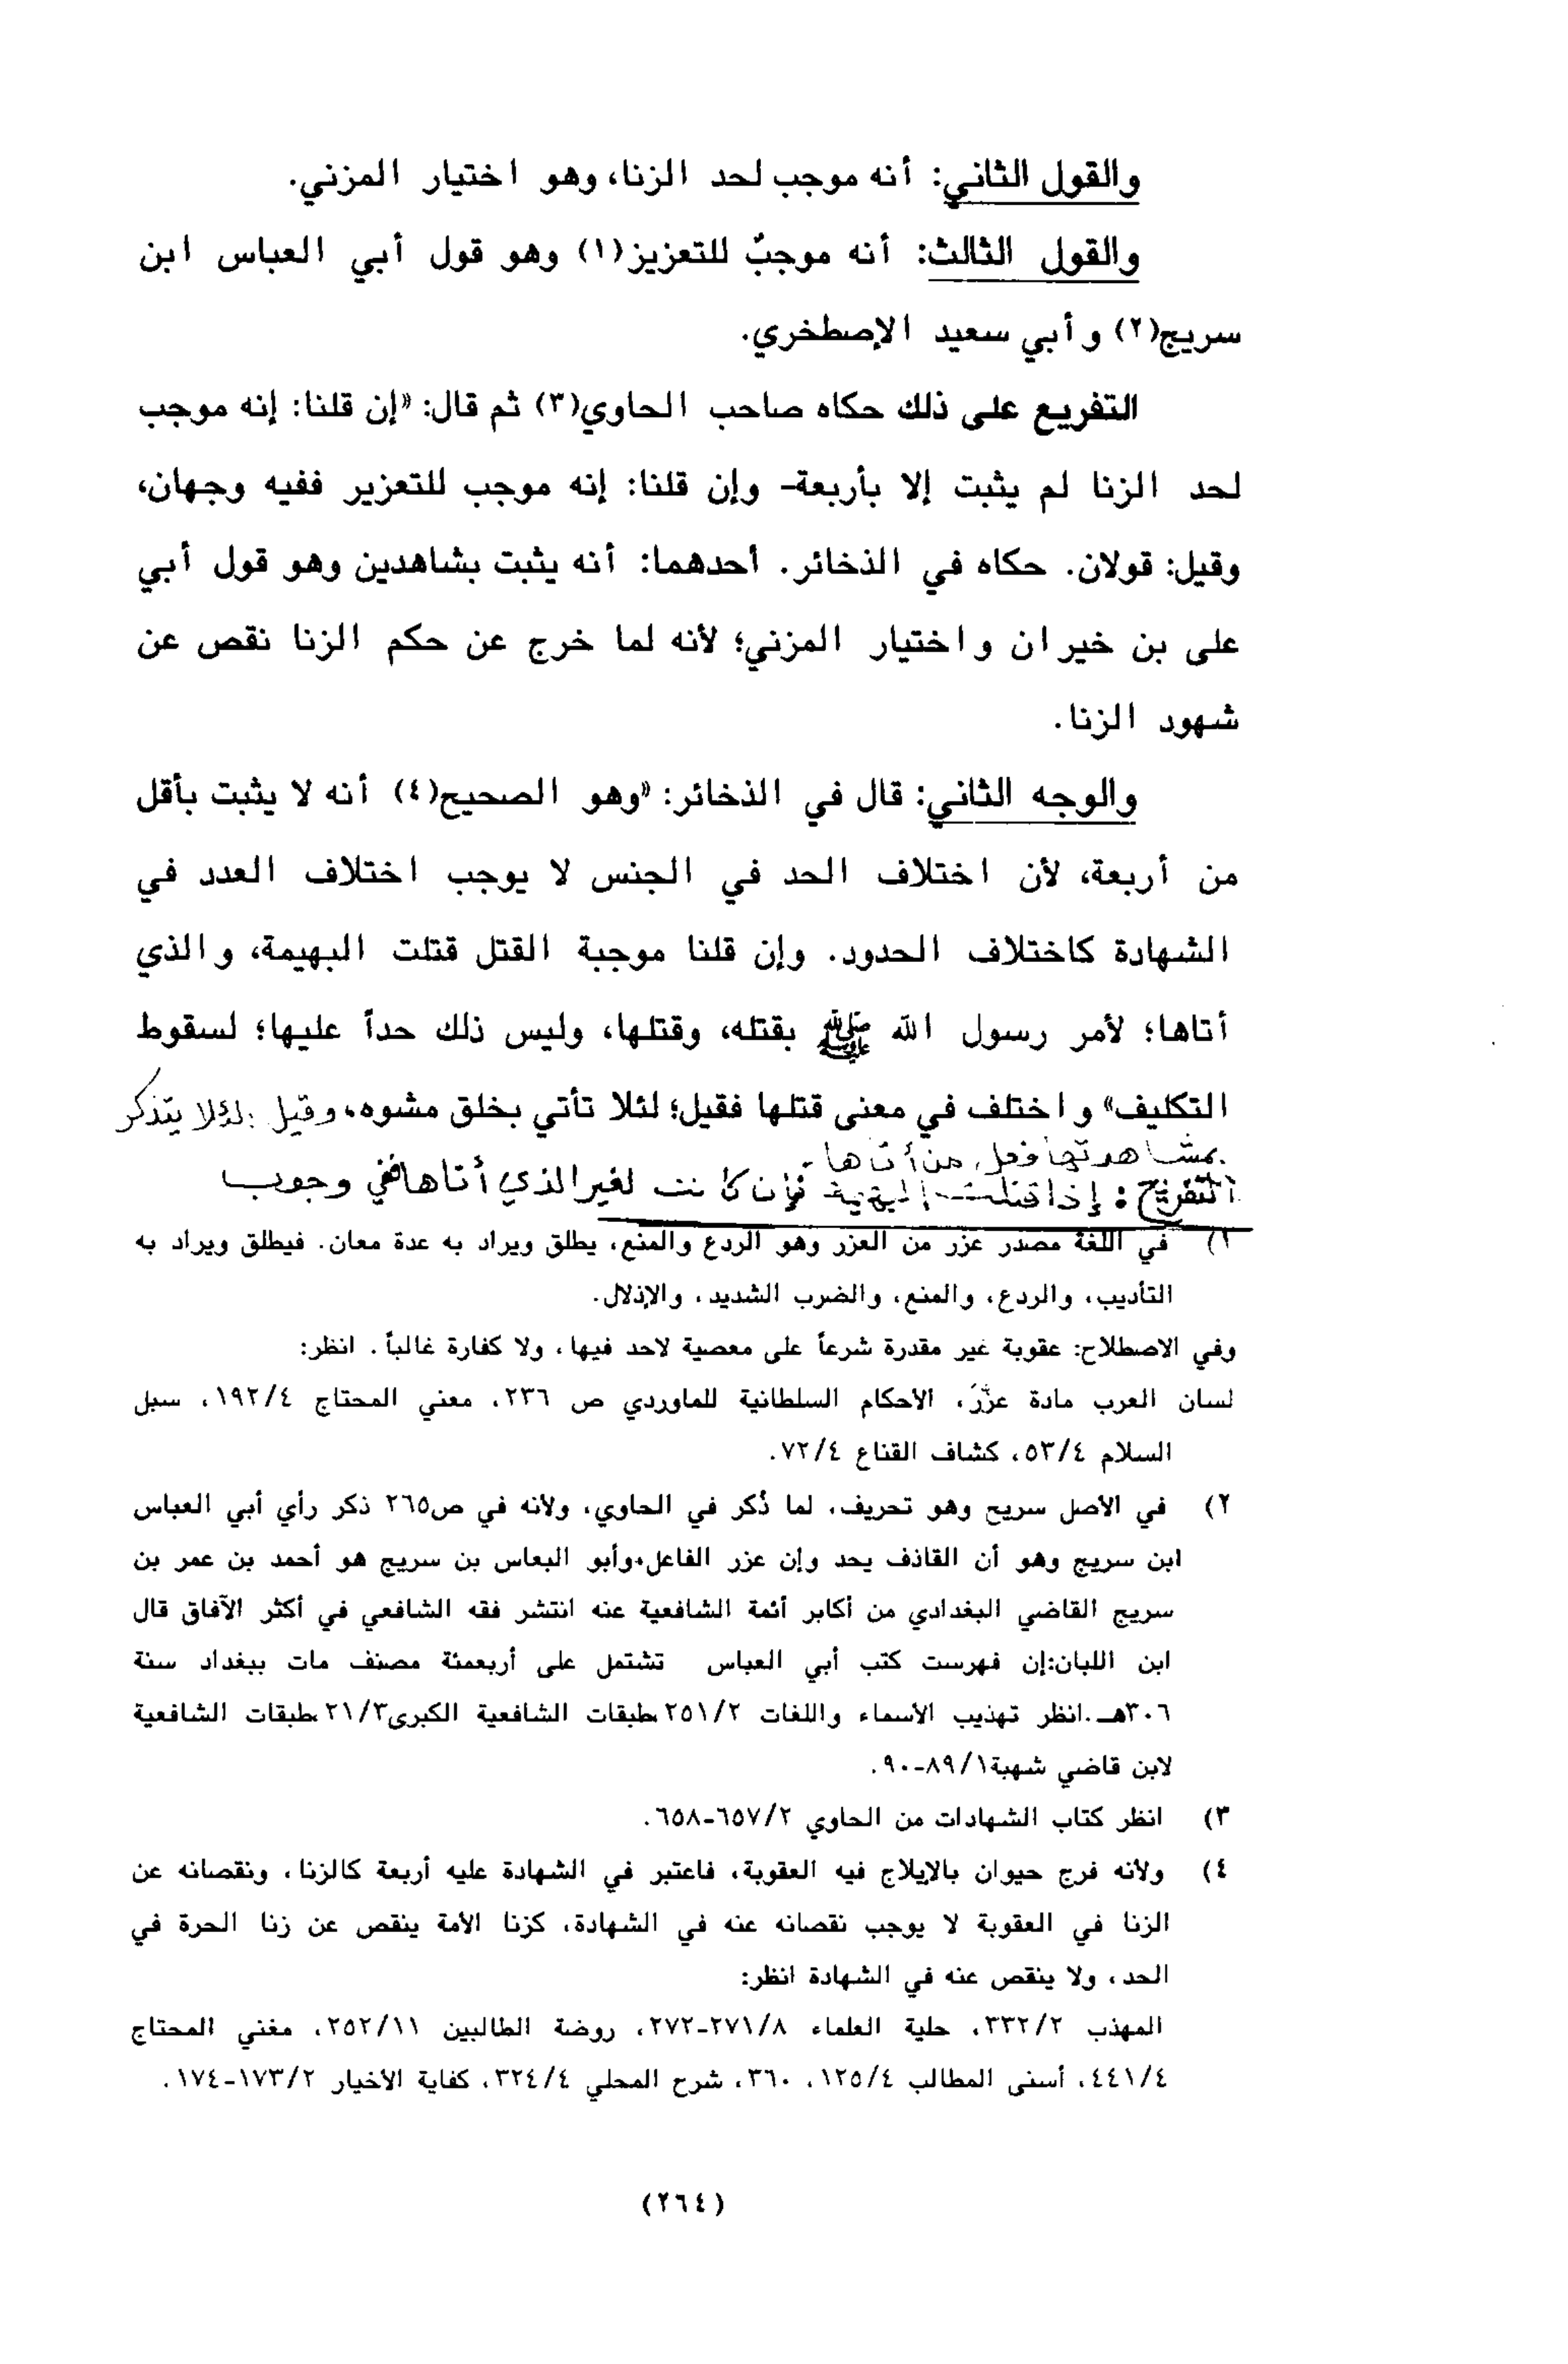 والقول الثاني: أنه موجب لحد الزنا، وهو اختيار المزني.
والقول الثالث: أنه موجبٌ للتعزيز(١) وهو قول أبي العباس ابن
سريج(٢) وأبي سعيد الإصطخري.
التفريع على ذلك حكاه صاحب الحاوي(٣) ثم قال: «إن قلنا: إنه موجب
لحد الزنا لم يثبت إلا بأربعة- وإن قلنا: إنه موجب للتعزير ففيه وجهان،
وقيل: قولان. حكاه في الذخائر. أحدهما: أنه يثبت بشاهدين وهو قول أبي
على بن خيران واختيار المزني؛ لأنه لما خرج عن حكم الزنا نقص عن
شهود الزنا.
والوجه الثاني: قال في الذخائر: «وهو الصحيح(٤) أنه لا يثبت بأقل
من أربعة، لأن اختلاف الحد في الجنس لا يوجب اختلاف العدد في
الشهادة كاختلاف الحدود. وإن قلنا موجبة القتل قتلت البهيمة، والذي
أتاها؛ لأمر رسول الله ﷺ بقتله، وقتلها، وليس ذلك حداً عليها؛ لسقوط
التكليف» واختلف في معنى قتلها فقيل؛ لئلا تأتي بخلق مشوه، وقيل: لئلا يتذكر
بمشاهدتها فعل من أتاها.
التفريع: إذا قتلت البهيمة فإن كانت لغير الذي أتاها ففي وجوب
١) في اللغة مصدر عزر من العزر وهو الردع والمنع، يطلق ويراد به عدة معان. فيطلق ويراد به
التأديب، والردع، والمنع، والضرب الشديد، والإذلال.
وفي الاصطلاح: عقوبة غير مقدرة شرعاً على معصية لاحد فيها، ولا كفارة غالباً. انظر:
لسان العرب مادة عزّرَ، الأحكام السلطانية للماوردي ص ٢٣٦، معني المحتاج ١٩٢/٤، سبل
السلام ٥٣/٤، كشاف القناع ٧٢/٤.
٢) في الأصل سريح وهو تحريف، لما ذُكر في الحاوي، ولأنه في ص٢٦٥ ذكر رأي أبي العباس
ابن سريج وهو أن القاذف يحد وإن عزر الفاعل،وأبو البعاس بن سريج هو أحمد بن عمر بن
سريج القاضي البغدادي من أكابر أئمة الشافعية عنه انتشر فقه الشافعي في أكثر الآفاق قال
ابن اللبان:إن فهرست كتب أبي العباس تشتمل على أربعمئة مصنف مات ببغداد سنة
٣٠٦هـ.انظر تهذيب الأسماء واللغات ٢٥١/٢طبقات الشافعية الكبرى٢١/٣طبقات الشافعية
لابن قاضي شهبة٨٩/١-٩٠.
٣) انظر كتاب الشهادات من الحاوي ٦٥٧/٢-٦٥٨.
٤) ولأنه فرج حيوان بالإيلاج فيه العقوبة، فاعتبر في الشهادة عليه أربعة كالزنا، ونقصانه عن
الزنا في العقوبة لا يوجب نقصانه عنه في الشهادة، كزنا الأمة ينقص عن زنا الحرة في
الحد، ولا ينقص عنه في الشهادة انظر:
المهذب ٣٣٢/٢، حلية العلماء ٢٧١/٨-٢٧٢، روضة الطالبين ٢٥٢/١١، مغني المحتاج
٤٤١/٤، أسنى المطالب ١٢٥/٤، ٣٦٠، شرح المحلي ٣٢٤/٤، كفاية الأخيار ١٧٣/٢-١٧٤.
(٢٦٤)